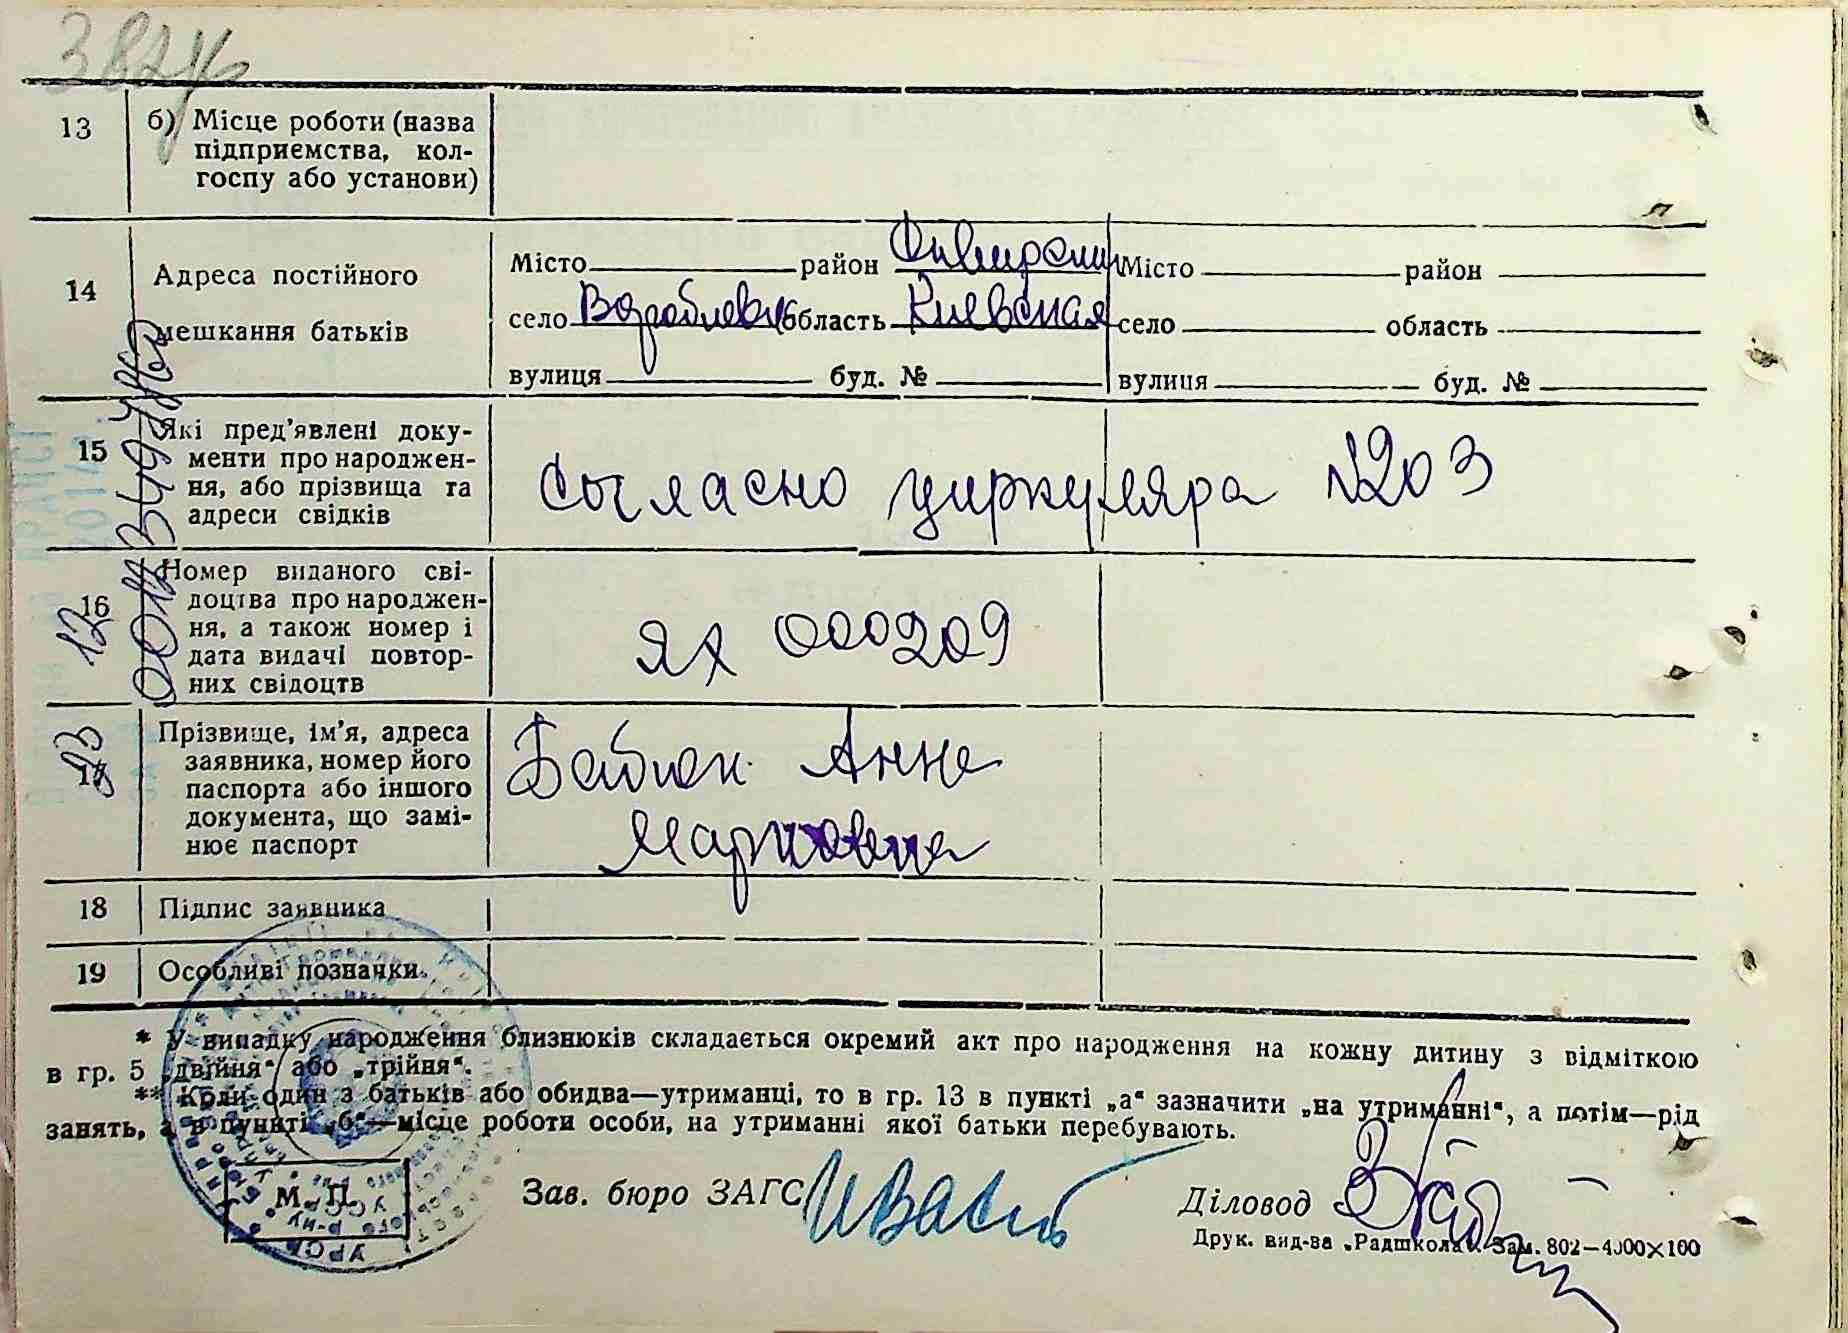 13 б) Місце роботи (назва
підприємства, кол-
госпу або установи)
14 Адреса постійного
мешкання батьків
Місто район Сквирский Місто район
село область Киевская село область
вулиця буд. № вулиця буд. №
15 Які пред'явлені доку-
менти про народжен-
ня, або прізвища та
адреси свідків
Согласно циркуляра №203
16 Номер виданого сві-
доцтва про народжен-
ня, а також номер і
дата видачі повтор-
них свідоцтв
ЯХ 000209
17 Прізвище, ім'я, адреса
заявника, номер його
паспорта або іншого
документа, що замі-
нює паспорт
Бабюк Анна
Марковна
18 Підпис заявника
19 Особливі позначки
* У випадку народження близнюків складається окремий акт про народження на кожну дитину з відміткою
в гр. 5 „двійня“ або „трійня“.
** Коли один з батьків або обидва—утриманці, то в гр. 13 в пункті „а“ зазначити „на утриманні“, а потім—рід
занять, а в пункті „б“—місце роботи особи, на утриманні якої батьки перебувають.
М. П.
Зав. бюро ЗАГС
Діловод
Друк. вид-ва „Радшкола“. Зам. 802—4000×100